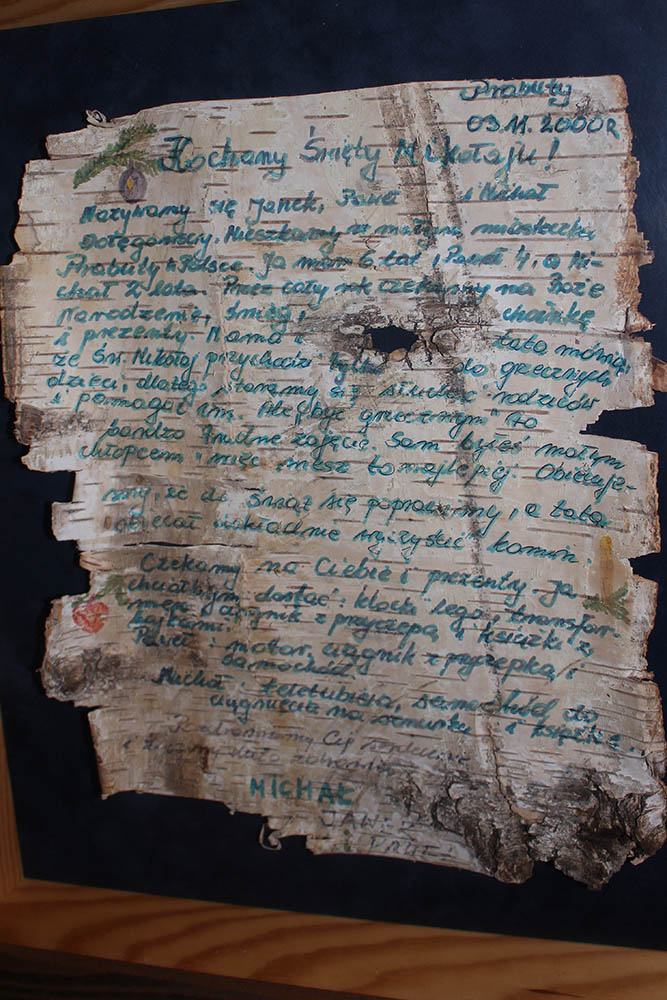 Prabuty
09.11.2000R
Kochany Święty Mikołaju!
Nazywamy się Janek, Paweł i Michał
Dołęgowscy. Mieszkamy w małym miasteczku
Prabuty w Polsce. Ja mam 6 lat, Paweł 4, a Mi-
chał 2 lata. Przez cały rok czekamy na Boże
Narodzenie, śnieg, choinkę
i prezenty. Mama i tata mówią,
że Św. Mikołaj przychodzi tylko do grzecznych
dzieci, dlatego staramy się słuchać rodziców
i pomagać im. Ale "być grzecznym" to
bardzo trudne zajęcie. Sam byłeś małym
chłopcem, więc wiesz to najlepiej. Obiecuje-
my, że do Świąt się poprawimy, a tata
obiecał dokładnie wyczyścić komin.
Czekamy na Ciebie i prezenty. Ja
chciałbym dostać: klocki lego, transfor-
mera, ciągnik z przyczepą i książki z
bajkami.
Paweł: motor, ciągnik z przyczepką i
samochód.
Michał: teletubisia, samochód do
ciągnięcia na sznurku i książkę.
Pozdrawiamy Cię serdecznie
i
MICHAŁ
JANEK
PAWEŁ